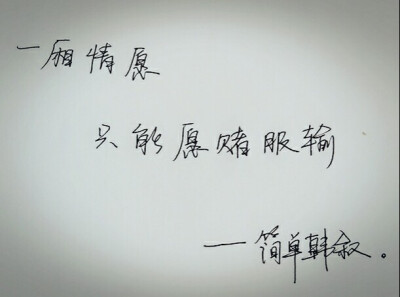 一厢情愿
只能愿赌服输
—简单韩叙。